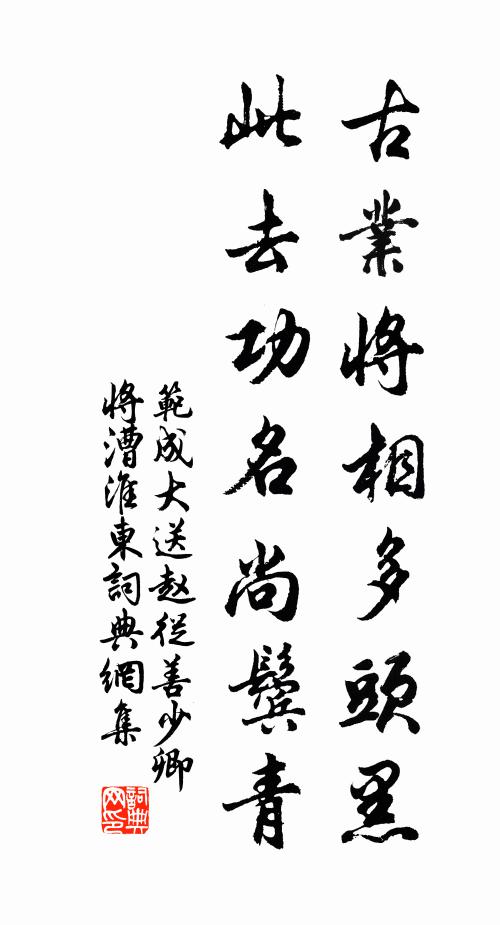 古業將相多頭黑
此去功名尚鬢青
範成大送赵從善少卿
將漕淮東詞典網集
詞典网印